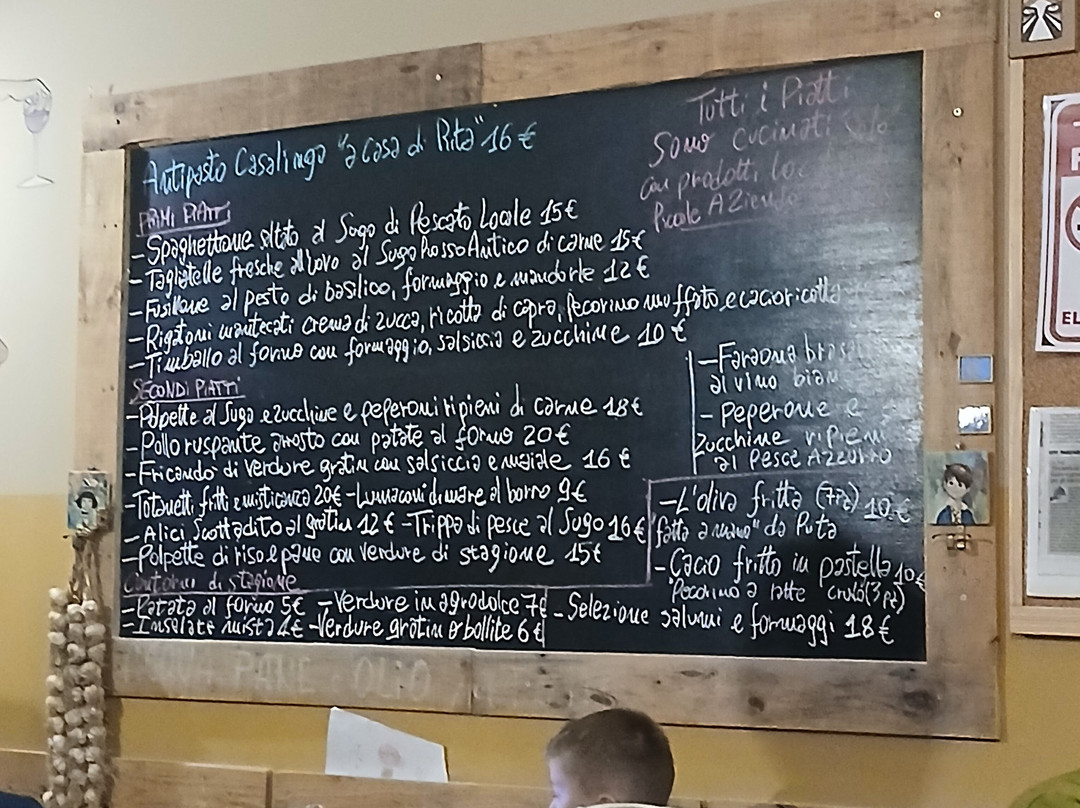 Antipasto Casalingo "a casa di Rita" 16 €
Tutti i Piatti
Sono cucinati solo
con prodotti
Piccole Aziende
PRIMI PIATTI
- Spaghettone al Sugo di Pescato Locale 15€
- Tagliatelle fresche all'uovo al Sugo Rosso Antico di carne 15€
- Fusillone al pesto di basilico, formaggio e mandorle 12€
- Rigatoni mantecati crema di zucca, ricotta di capra, Pecorino muffato, e cacioricotta
- Timballo al forno con formaggio, salsiccia e zucchine 10€
SECONDI PIATTI
- Polpette al Sugo e zucchine e peperoni ripieni di carne 18€
- Pollo ruspante arrosto con patate al forno 20€
- Fricandò di verdure gratin con salsiccia e maiale 16€
- Totanetti fritti e misticanza 20€ - Lumaconi di mare al borro 9€
- Alici Scottadito al gratin 12€ - Trippa di pesce al Sugo 16€
- Polpette di riso e pane con verdure di stagione 15€
- Faraona
al vino
- Peperone e
Zucchine ripieni
al Pesce Azzurro
- L'oliva fritta (7pz) 10€
"fatta a mano" da Rita
- Cacio fritto in pastella 10€
Pecorino a latte crudo (3 pz)
- Selezione salumi e formaggi 18€
Contorni di stagione
- Patate al forno 5€ - Verdure in agrodolce 7€
- Insalate mista 4€ - Verdure gratin o bollite 6€
PANE OLIO
EL